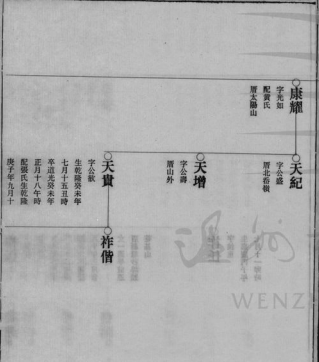 康耀
字光如
配黃氏
厝太陽山
天紀
字公盛
厝北岙嶺
天增
字公壽
厝山外
天貴
字公歆
生乾隆癸未年
七月十五丑時
卒道光癸未年
正月十八午時
配張氏生乾隆
庚子年九月十
祚偕
WENZ